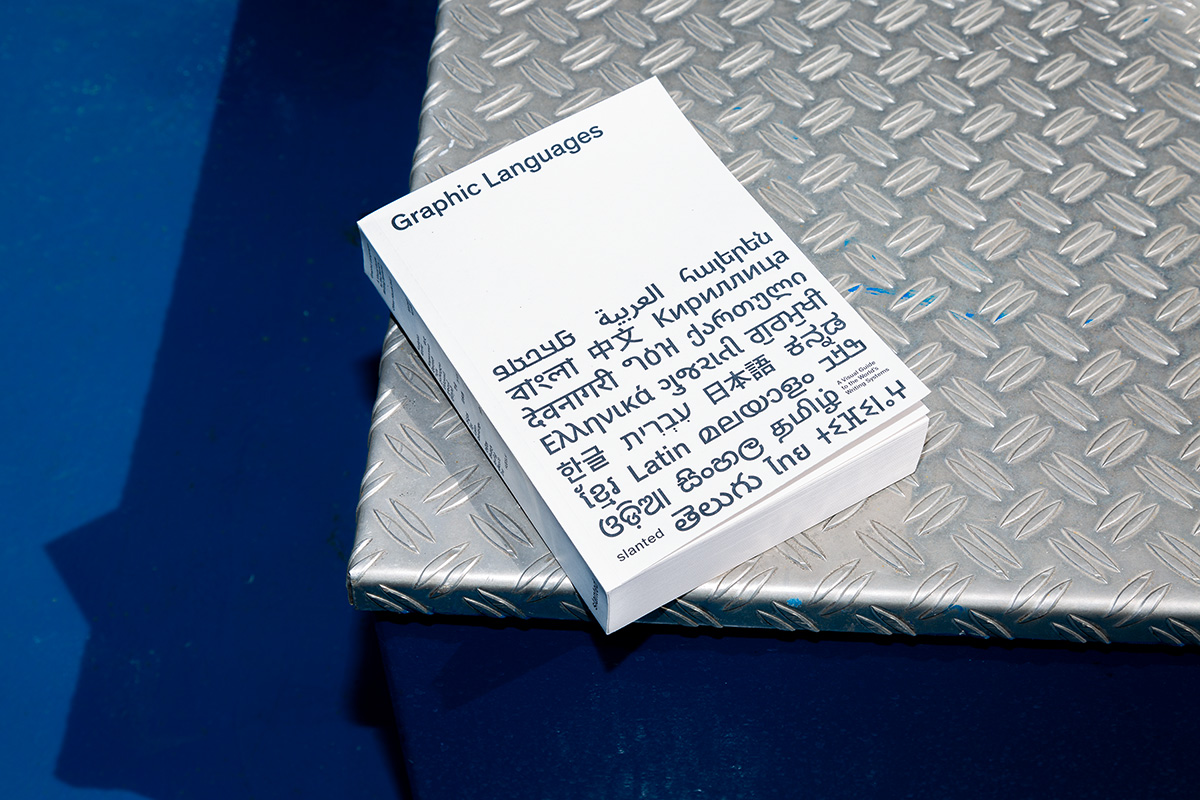 Graphic Languages
العربية հայերեն
বাংলা 中文 Кириллица
देवनागरी ግዕዝ ქართული
Ελληνικά ગુજરાતી ਗੁਰਮੁਖੀ
한글 עִבְרִית 日本語 ಕನ್ನಡ
ខ្មែរ Latin മലയാളം
ଓଡ଼ିଆ සිංහල தமிழ்
తెలుగు ไทย ⵜⵉⴼⵉⵏⴰⵖ
A Visual Guide
to the World's
Writing Systems
slanted
slanted